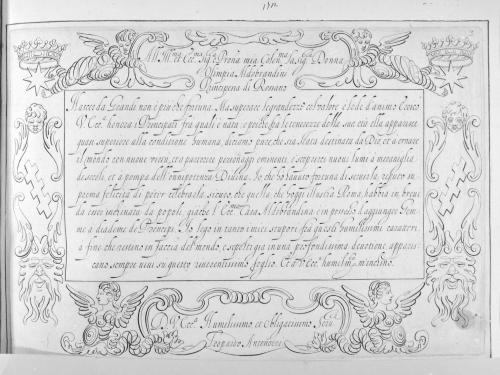 All' Ill.ma et Ecc.ma Sig.ra Prona mia Colen.ma la Sig.ra Donna
Olimpia Aldobrandini
Principessa di Rossano
Nascer da Grandi non è più che fortuna. Ma superare le grandezze col valore e lode d'animo Eroico
V. Ecc.a honora i Principati fra quali è nata; e poiche fra le tenerezze della sua età ella apparisce
quasi superiore alla conditione humana, diciamo pure, che sia stata destinata da Dio, et a ornare
il mondo con nuove virtù, et a partorire personaggi eminenti e scoprirce nuovi lumi a meraviglia
de secoli, et a pompa dell'onnipotenza Divina. Io che hò havuto fortuna di seruirla, reputo su
prema felicità di poter celebrarla sicuro, che quella, che hoggi illustra Roma, habbia in breve
da esser inchinata da popoli, giache l'Ecc.ma Casa Aldobrandina è in possesso d'aggiunger Gem
me a diademe de Prencipi. Io lego in tanto i miei stupori frà questi humilissimi caratteri
a fine che restano in faccia del mondo, e scolpiti gia in una profondissima devotione apparis
cano sempre vivi su questo riverentissimo foglio. Et a V. Ecc.a humilm.te m'inchino.
D. V. Ecc.a Humilissimo, et Obligatissimo Ser.re
Leopardo Antonozzi